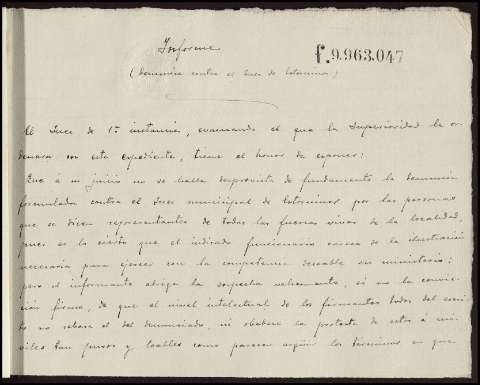 Informe
f. 9.963.047
(Denuncia contra el Juez de Cotorrinos)
El Juez de 1ª instancia, evacuando el que la Superioridad le or-
denara en este expediente, tiene el honor de exponer:
Que á su juicio no se halla desprovista de fundamento la denuncia
formulada contra el Juez municipal de Cotorrinos por las personas
que se dicen representantes de todas las fuerzas vivas de la localidad,
pues es lo cierto que el indicado funcionario carece de la ilustración
necesaria para ejercer con la competencia deseable su ministerio;
pero el informante abriga la sospecha vehemente, si no la convic-
ción firme, de que el nivel intelectual de los firmantes todos del escri-
to no rebasa el del denunciado, ni obedece la protesta de estos á mó-
viles tan puros y loables como parecen según los términos en que